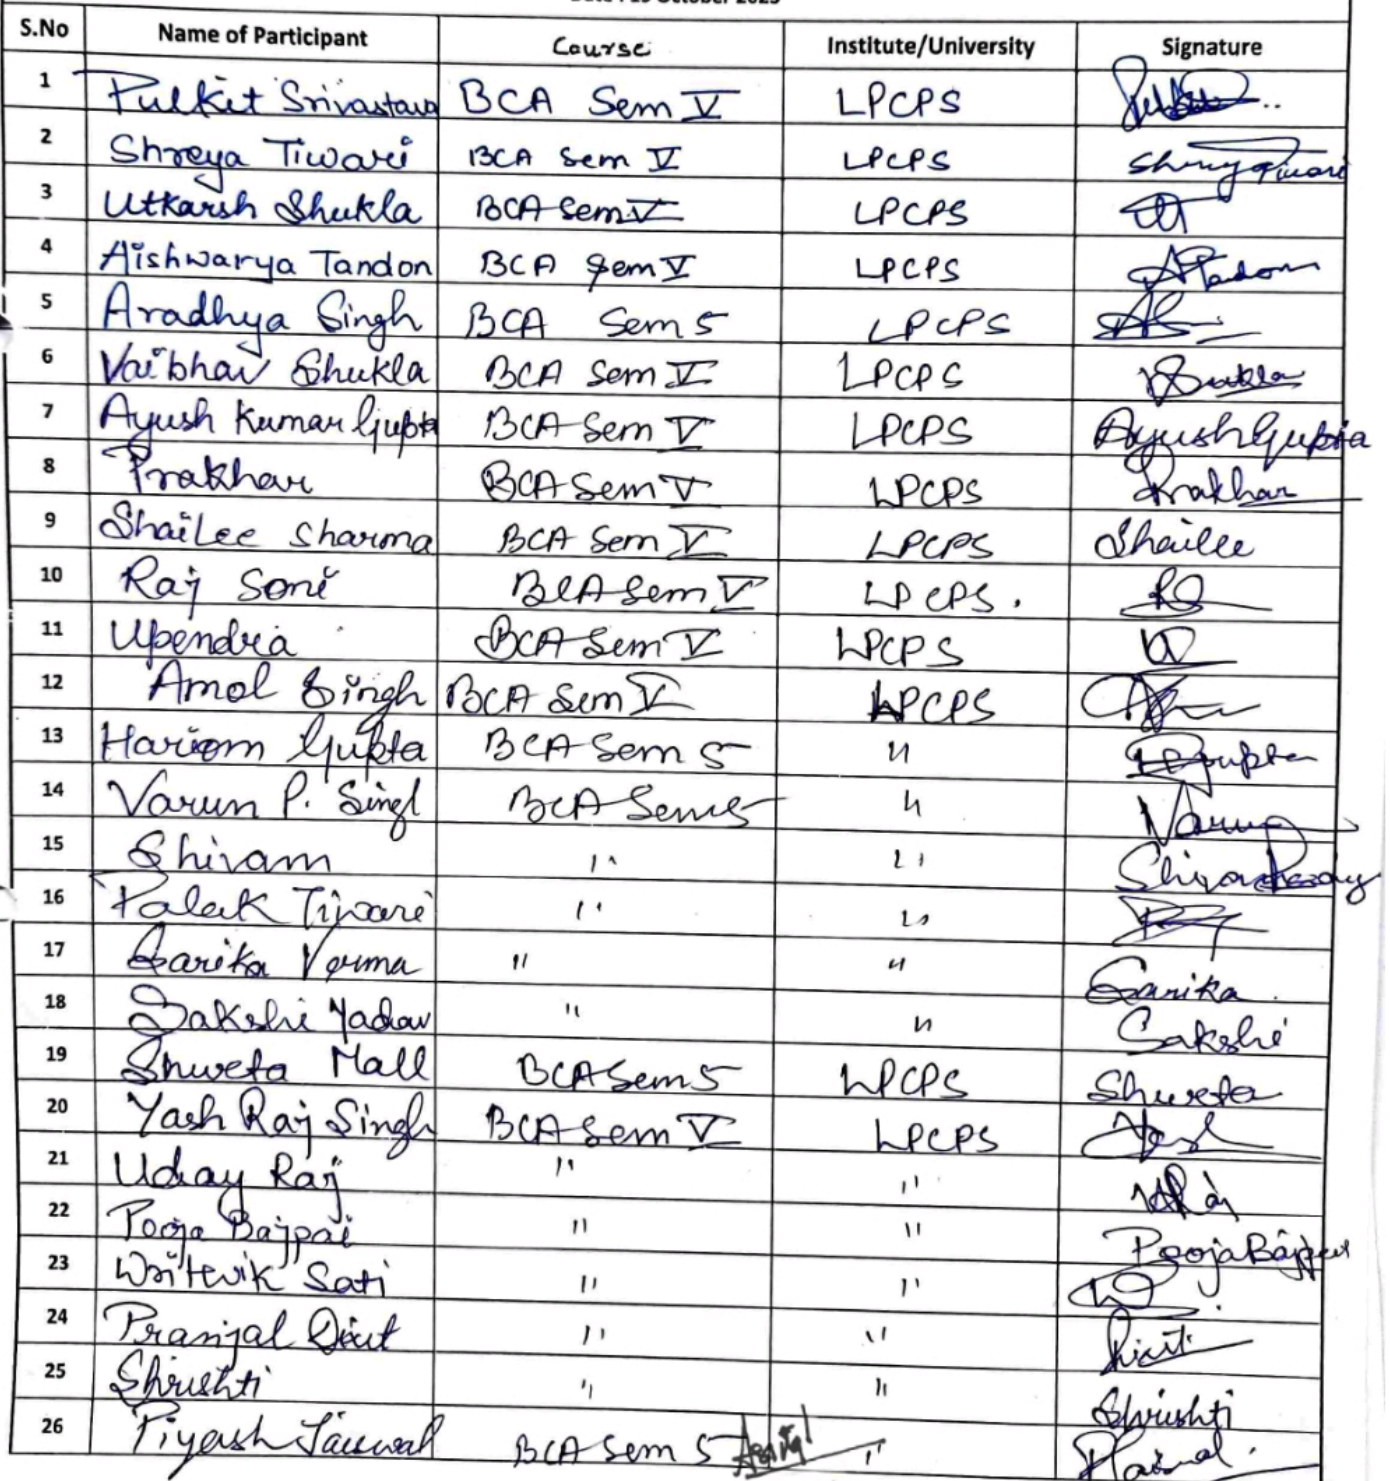 S.No Name of Participant Course Institute/University Signature
1 Pulkit Srivastava BCA Sem V LPCPS
2 Shreya Tiwari BCA Sem V LPCPS Shreya Tiwari
3 Utkarsh Shukla BCA Sem V LPCPS
4 Aishwarya Tandon BCA Sem V LPCPS ATandon
5 Aradhya Singh BCA Sem 5 LPCPS
6 Vaibhav Shukla BCA Sem V LPCPS
7 Ayush Kumar Gupta BCA Sem V LPCPS Ayush Gupta
8 Prakhar BCA Sem V LPCPS Prakhar
9 ShaiLee Sharma BCA Sem V LPCPS Shailee
10 Raj Soni BCA Sem V LPCPS.
11 Upendra BCA Sem V LPCPS
12 Amol Singh BCA Sem V LPCPS
13 Hariom Gupta BCA Sem 5 " Gupta
14 Varun P. Singh BCA Sem 5 " Varun
15 Shivam " "
16 Palak Tiwari " "
17 Garika Verma " " Garika
18 Sakshi Yadav " " Sakshi
19 Shweta Mall BCA Sem 5 LPCPS Shweta
20 Yash Raj Singh BCA Sem V LPCPS Yash
21 Uday Raj " "
22 Pooja Bajpai " " Pooja Bajpai
23 Writwik Sati " "
24 Pranjal Dixit " "
25 Shrushti " " Shrushti
26 Piyush Jaiswal BCA Sem 5 "